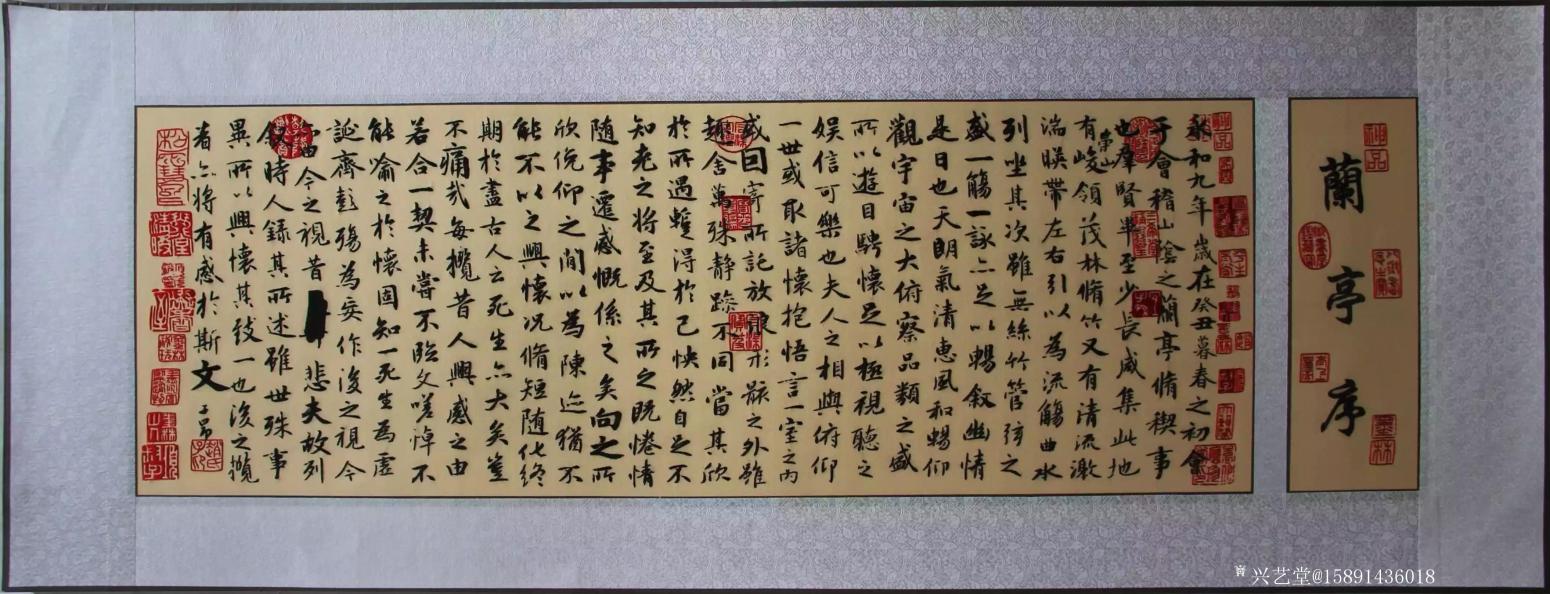 蘭亭序
神品
墨林
永和九年歲在癸丑暮春之初會
于會稽山陰之蘭亭脩稧事
也羣賢畢至少長咸集此地
有崇山峻領茂林脩竹又有清流激
湍暎帶左右引以為流觴曲水
列坐其次雖無絲竹管弦之
盛一觴一詠亦足以暢敘幽情
是日也天朗氣清惠風和暢仰
觀宇宙之大俯察品類之盛
所以遊目騁懷足以極視聽之
娛信可樂也夫人之相與俯仰
一世或取諸懷抱悟言一室之內
或因寄所託放浪形骸之外雖
趣舍萬殊靜躁不同當其欣
於所遇蹔得於己怏然自足不
知老之將至及其所之既惓情
隨事遷感慨係之矣向之所
欣俛仰之閒以為陳迹猶不
能不以之興懷況脩短隨化終
期於盡古人云死生亦大矣豈
不痛哉每攬昔人興感之由
若合一契未嘗不臨文嗟悼不
能喻之於懷固知一死生為虛
誕齊彭殤為妄作後之視今
亦由今之視昔悲夫故列
敘時人錄其所述雖世殊事
異所以興懷其致一也後之攬
者亦將有感於斯文
子昂
兴艺堂@15891436018